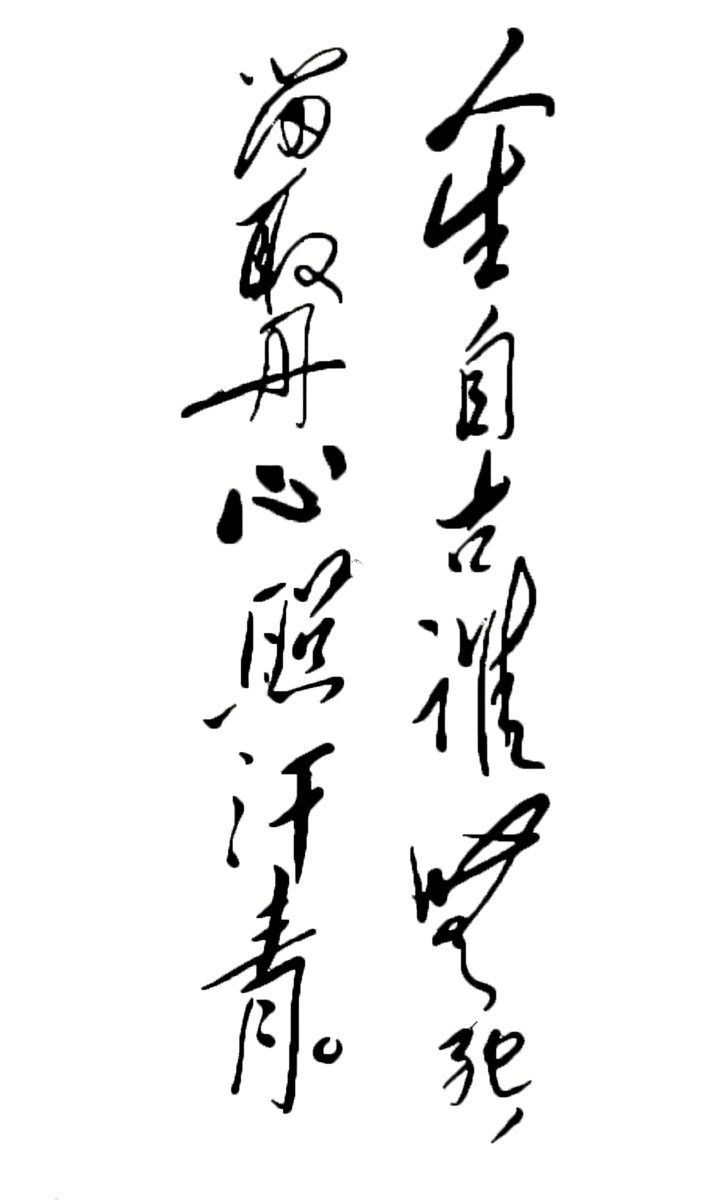 人生自古谁无死，
留取丹心照汗青。